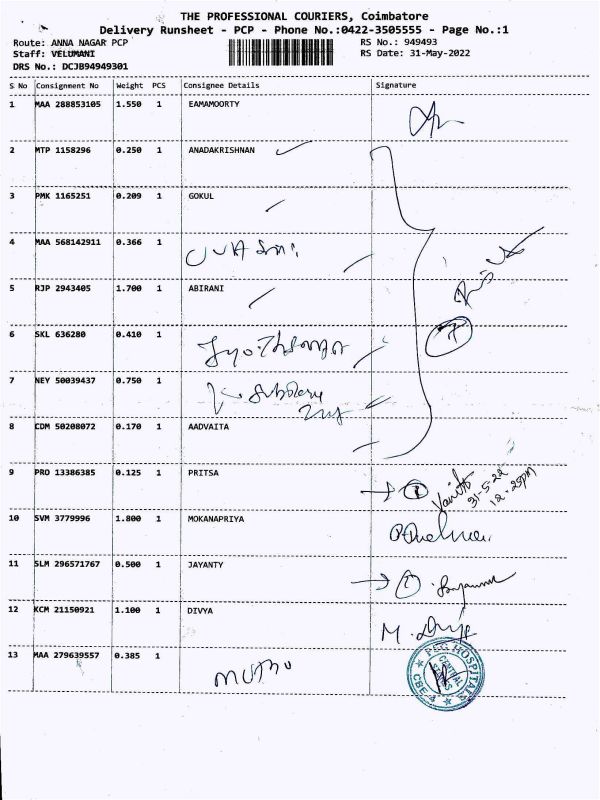 THE PROFESSIONAL COURIERS, Coimbatore
Delivery Runsheet - PCP - Phone No.:0422-3505555 - Page No.:1
Route: ANNA NAGAR PCP RS No.: 949493
Staff: VELUMANI RS Date: 31-May-2022
DRS No.: DCJB94949301
S No Consignment No Weight PCS Consignee Details Signature
1 MAA 288853105 1.550 1 EAMAMOORTY
2 MTP 1158296 0.250 1 ANADAKRISHNAN
3 PMK 1165251 0.209 1 GOKUL
4 MAA 568142911 0.366 1
5 RJP 2943405 1.700 1 ABIRANI
6 SKL 636280 0.410 1
7 NEY 50039437 0.750 1
8 CDM 50208072 0.170 1 AADVAITA
9 PRO 13386385 0.125 1 PRITSA
31-5-22
12.25pm
10 SVM 3779996 1.800 1 MOKANAPRIYA
11 SLM 296571767 0.500 1 JAYANTY
12 KCM 21150921 1.100 1 DIVYA
M. Divya
13 MAA 279639557 0.385 1 MUTHU
HOSPITALS
CBE-4